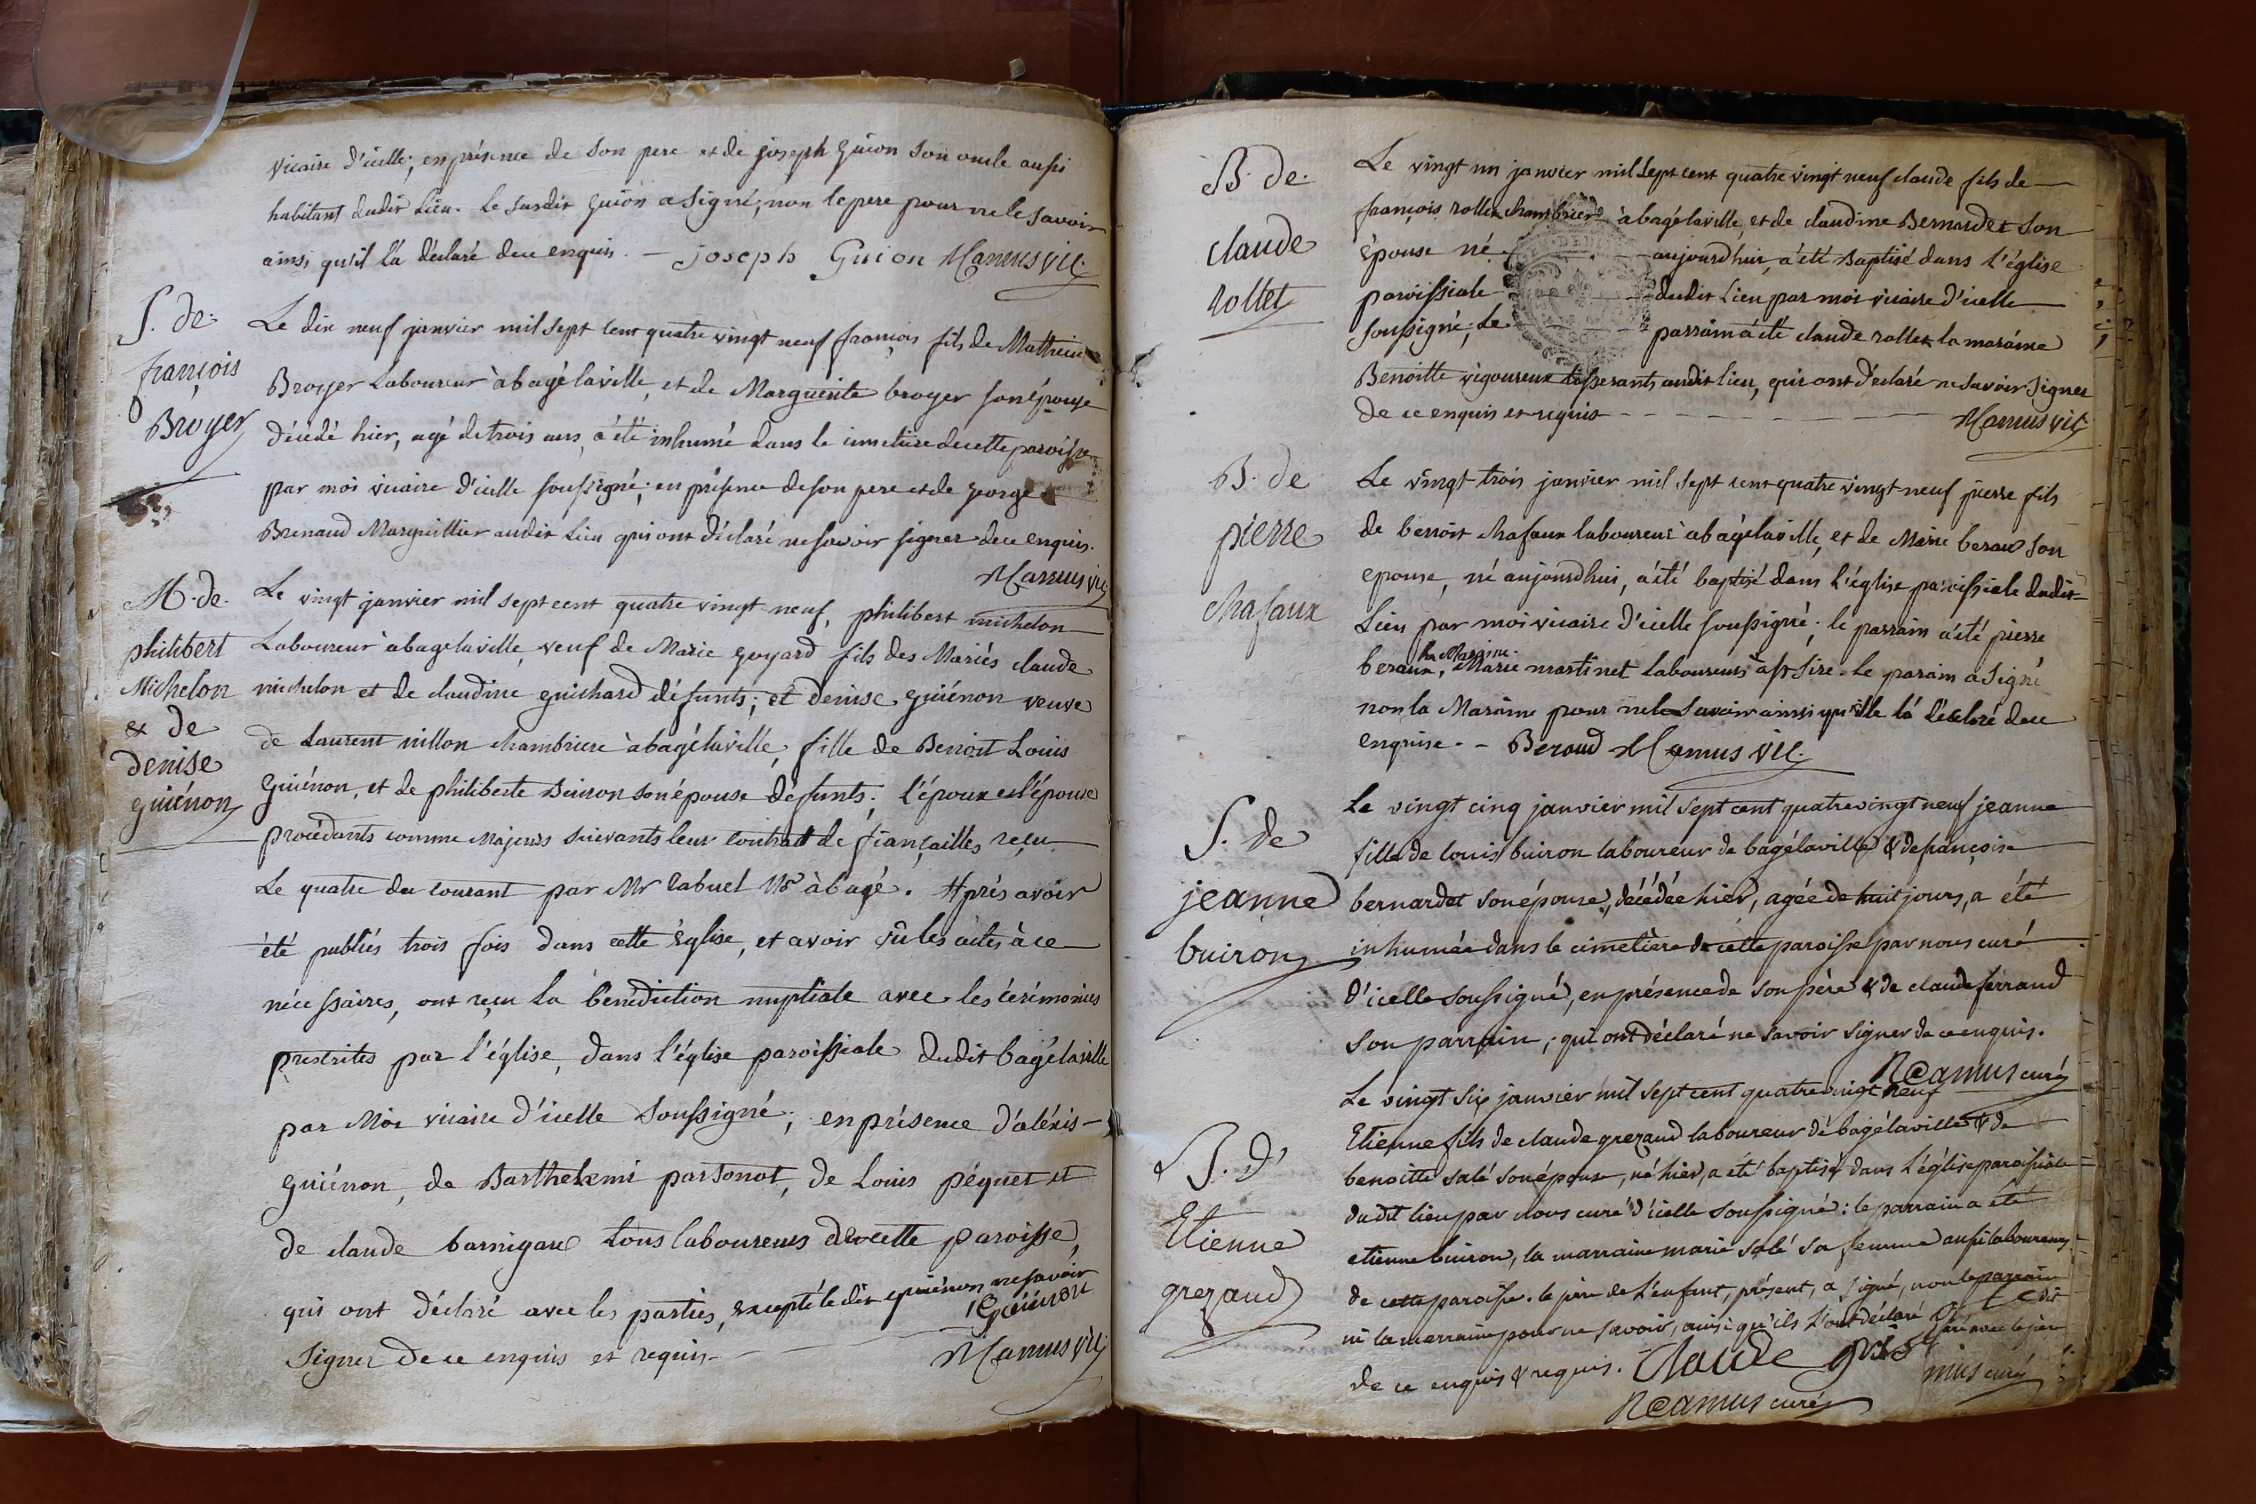 vicaire d'icelle; en présence de son pere et de joseph guion son oncle aussi
habitant dudit Lieu. Le susdit guion a signé, non le pere pour ne le savoir
ainsi qu'il l'a déclaré de ce enquis. — joseph Guion Namus vic.
S. de
françois
Broyer
Le dix neuf janvier mil sept cent quatre vingt neuf françois fils de Mathieu
Broyer Laboureur à bagélaville, et de Marguerite broyer son épouse
décédé hier, agé de trois ans, a été inhumé dans le cimetiere de cette paroisse
par moi vicaire d'icelle soussigné; en présence de son pere et de george
Brenaud Marguillier audit Lieu qui ont déclaré ne savoir signer de ce enquis.
Namus vic.
M. de
philibert
Michelon
& de
denise
guiénon
Le vingt janvier mil sept cent quatre vingt neuf, philibert michelon
Laboureur à bagélaville, veuf de Marie goyard fils des Mariés claude
michelon et de claudine guichard défunts; et denise guiénon veuve
de Laurent nillon chambriere à bagélaville, fille de Benoit Louis
guiénon, et de philiberte Buiron son épouse défunts; l'époux et l'épouse
procédants comme Majeurs suivants leur contrat de fiançailles reçu
Le quatre du courant par Mr rabuel Nre à bagé. Après avoir
été publiés trois fois dans cette église, et avoir vû les actes à ce
nécessaires, ont reçu la bénédiction nuptiale avec les cérémonies
prescrites par l'église, dans l'église paroissiale dudit bagélaville
par Moi vicaire d'icelle Soussigné; en présence d'aléxis
guiénon, de Barthelemi parsonot, de Louis péquet et
de claude barnigaud tous laboureurs de cette paroisse,
qui ont déclaré avec les parties, excepté ledit guiénon ne savoir
Guiénon
signer de ce enquis et requis Namus vic.
B. de
claude
rollet
Le vingt un janvier mil sept cent quatre vingt neuf claude fils de
françois rollet chambrier à bagélaville, et de claudine Bernardet Son
épouse né aujourdhui, a été Baptisé dans l'église
paroissiale dudit Lieu par moi vicaire d'icelle
soussigné; Le parrain a été claude rollet la maraine
Benoitte vigoureux tisserants audit lieu, qui ont déclaré ne savoir signer
de ce enquis et requis Namus vic.
B. de
pierre
chafaux
Le vingt trois janvier mil sept cent quatre vingt neuf pierre fils
de benoit chafaux laboureur à bagélaville, et de Marie beraud son
epouse, né aujourdhui, a été baptisé dans l'église paroissiale dudit
Lieu par moi vicaire d'icelle soussigné; le parrain a été pierre
la Maraine
beraux, Marie martinet laboureurs à st Sire. Le parain a signé
non la Maraine pour ne le savoir ainsi qu'elle l'a déclaré de ce
enquise. — Beraud Namus vic.
S. de
jeanne
buiron
Le vingt cinq janvier mil sept cent quatre vingt neuf jeanne
fille de louis buiron laboureur de bagélaville & de françoise
bernardet son épouse, décédée hier, agée de huit jours, a été
inhumée dans le cimetière de cette paroisse par nous curé
d'icelle soussigné, en présence de son père & de claude ferrand
son parrain, qui ont déclaré ne savoir signer de ce enquis.
Namus curé
B. d'
Etienne
grezaud
Le vingt six janvier mil sept cent quatre vingt neuf
Etienne fils de claude grezaud laboureur de bagélaville & de
benoitte salé son épouse, né hier, a été baptisé dans l'église paroissiale
dudit lieu par nous curé d'icelle soussigné: le parrain a été
etienne buiron, la marraine marie salé sa femme aussi laboureurs
de cette paroisse. le père de l'enfant, présent, a signé, non le parrain
ni la marraine pour ne savoir, ainsi qu'ils l'ont déclaré
de ce enquis & requis. Claude
Namus curé